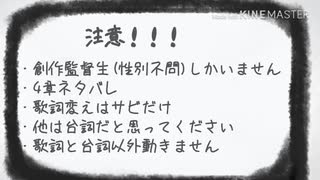 Made with
KINEMASTER
注意！！！
・創作監督生(性別不問)しかいません
・4章ネタバレ
・歌詞変えはサビだけ
・他は台詞だと思ってください
・歌詞と台詞以外動きません